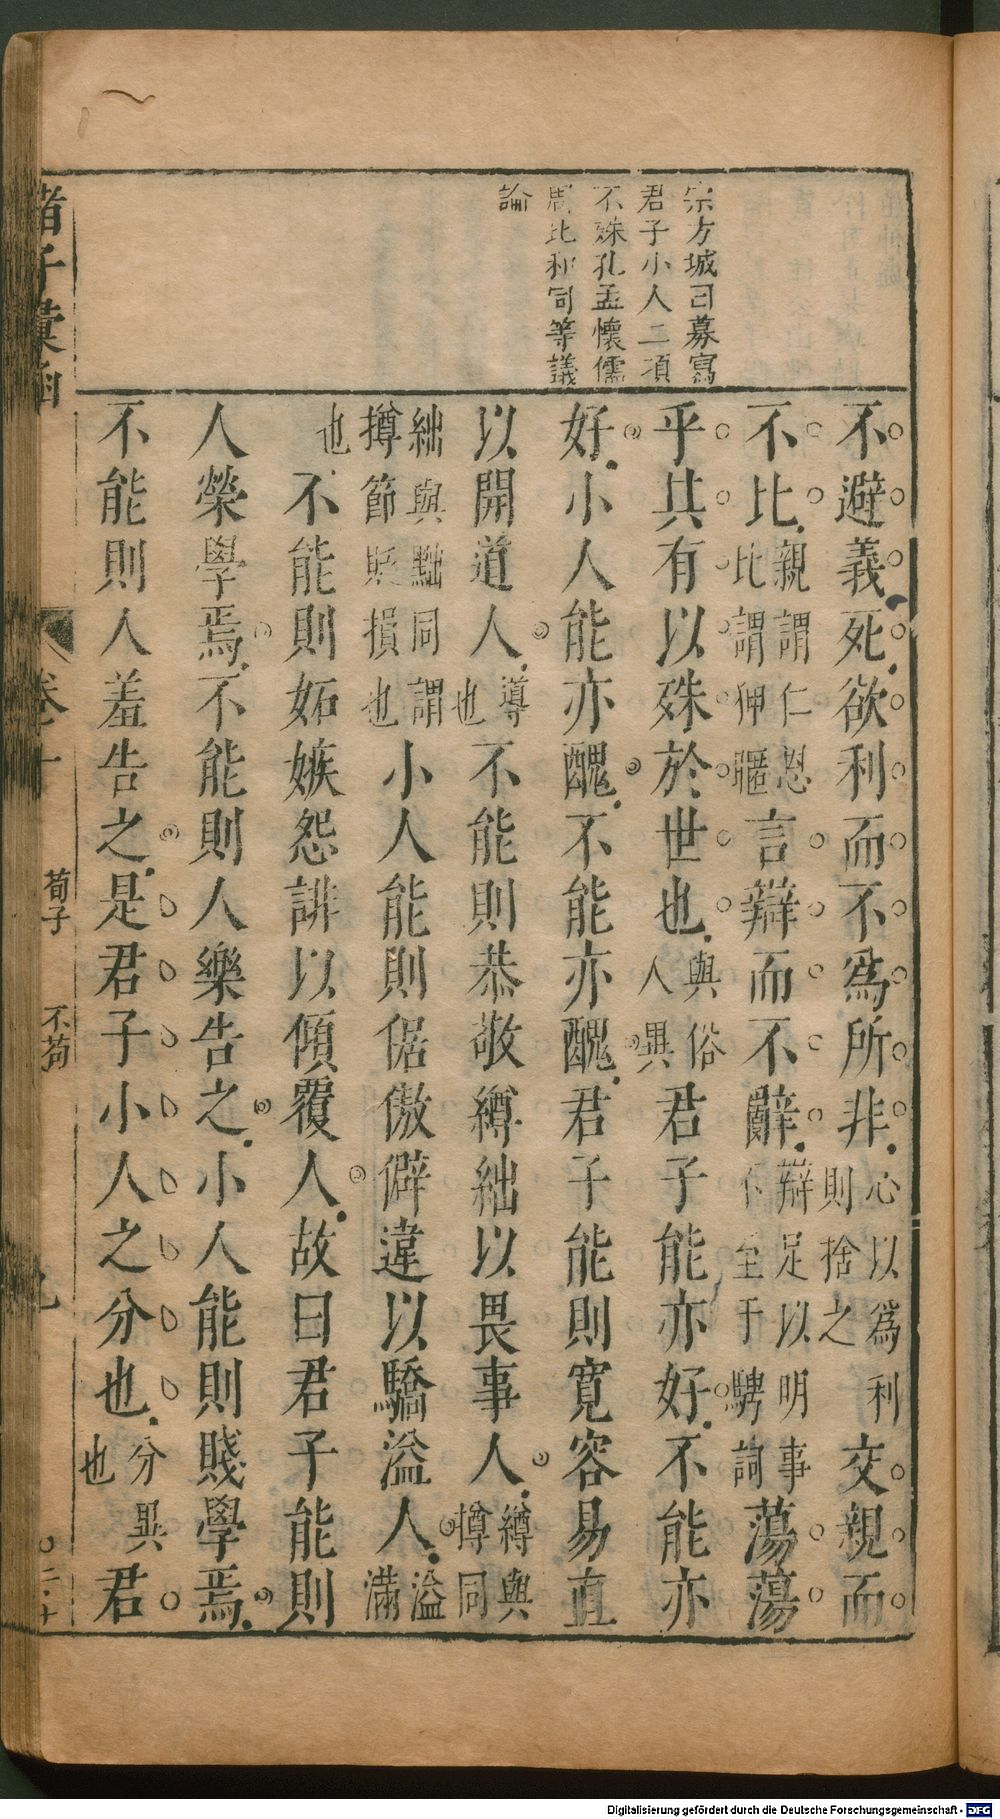 宗方城曰募寫
君子小人二項
不殊孔孟懷儒
周比和同等議
論
不避義死欲利而不爲所非心以爲利則捨之交親而
不比親謂仁恩比謂狎暱言辯而不辭辯足以明事不至于騁詞蕩蕩
乎共有以殊於世也與俗人異君子能亦好不能亦
好小人能亦醜不能亦醜君子能則寬容易直
以開道人導也不能則恭敬繜絀以畏事人繜與撙同
絀與黜同謂撙節貶損也小人能則倨傲僻違以驕溢人溢滿
也不能則妬嫉怨誹以傾覆人故曰君子能則
人榮學焉不能則人樂告之小人能則賤學焉
不能則人羞告之是君子小人之分也分異也君
諸子彙函
卷十
荀子
不苟
Digitalisierung gefördert durch die Deutsche Forschungsgemeinschaft - DFG